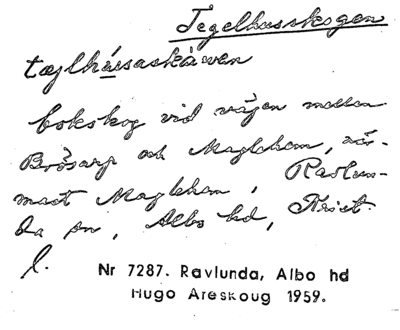 Tegelhusskogen
tæjlhússaskåwen
bokskog vid vägen mellan
Brösarp och Maglehem, när-
mast Maglehem, Ravlun-
da sn, Albo hd, Krist.
l.
Nr 7287. Ravlunda, Albo hd
Hugo Areskoug 1959.